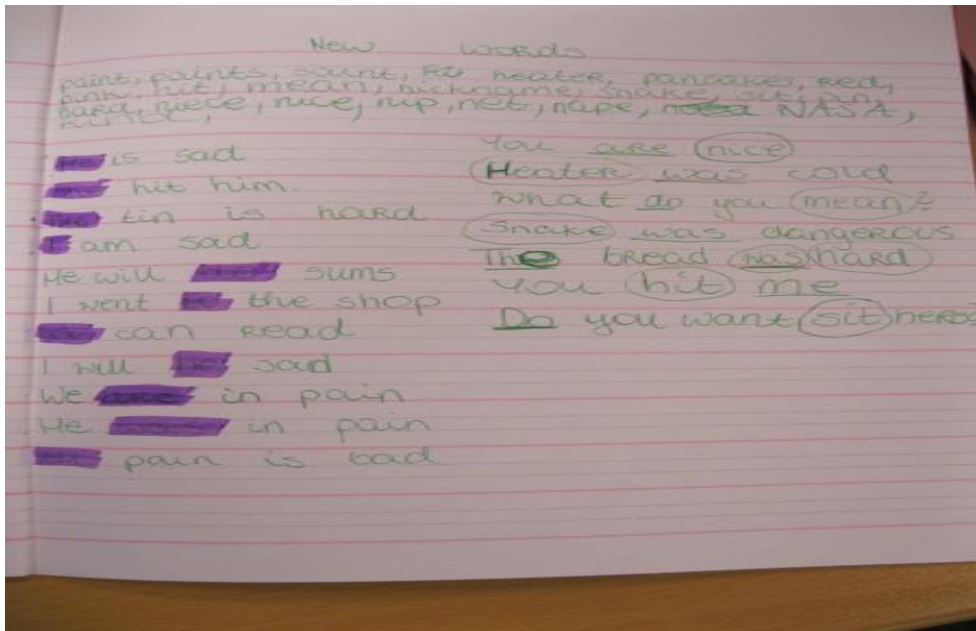 New words
paint, paints, saint, heater, pancakes, red,
pink, hit, mean, nickname, snake, sit, pin,
niece, nice, nip, net, nape, NASA,
He is sad
hit him.
The tin is hard
I am sad
He will sums
I went to the shop
can read
I will be sad
We are in pain
He in pain
pain is bad
You are nice
Heater was cold
What do you mean?
Snake was dangerous
The bread was hard
You hit me
Do you want sit here?